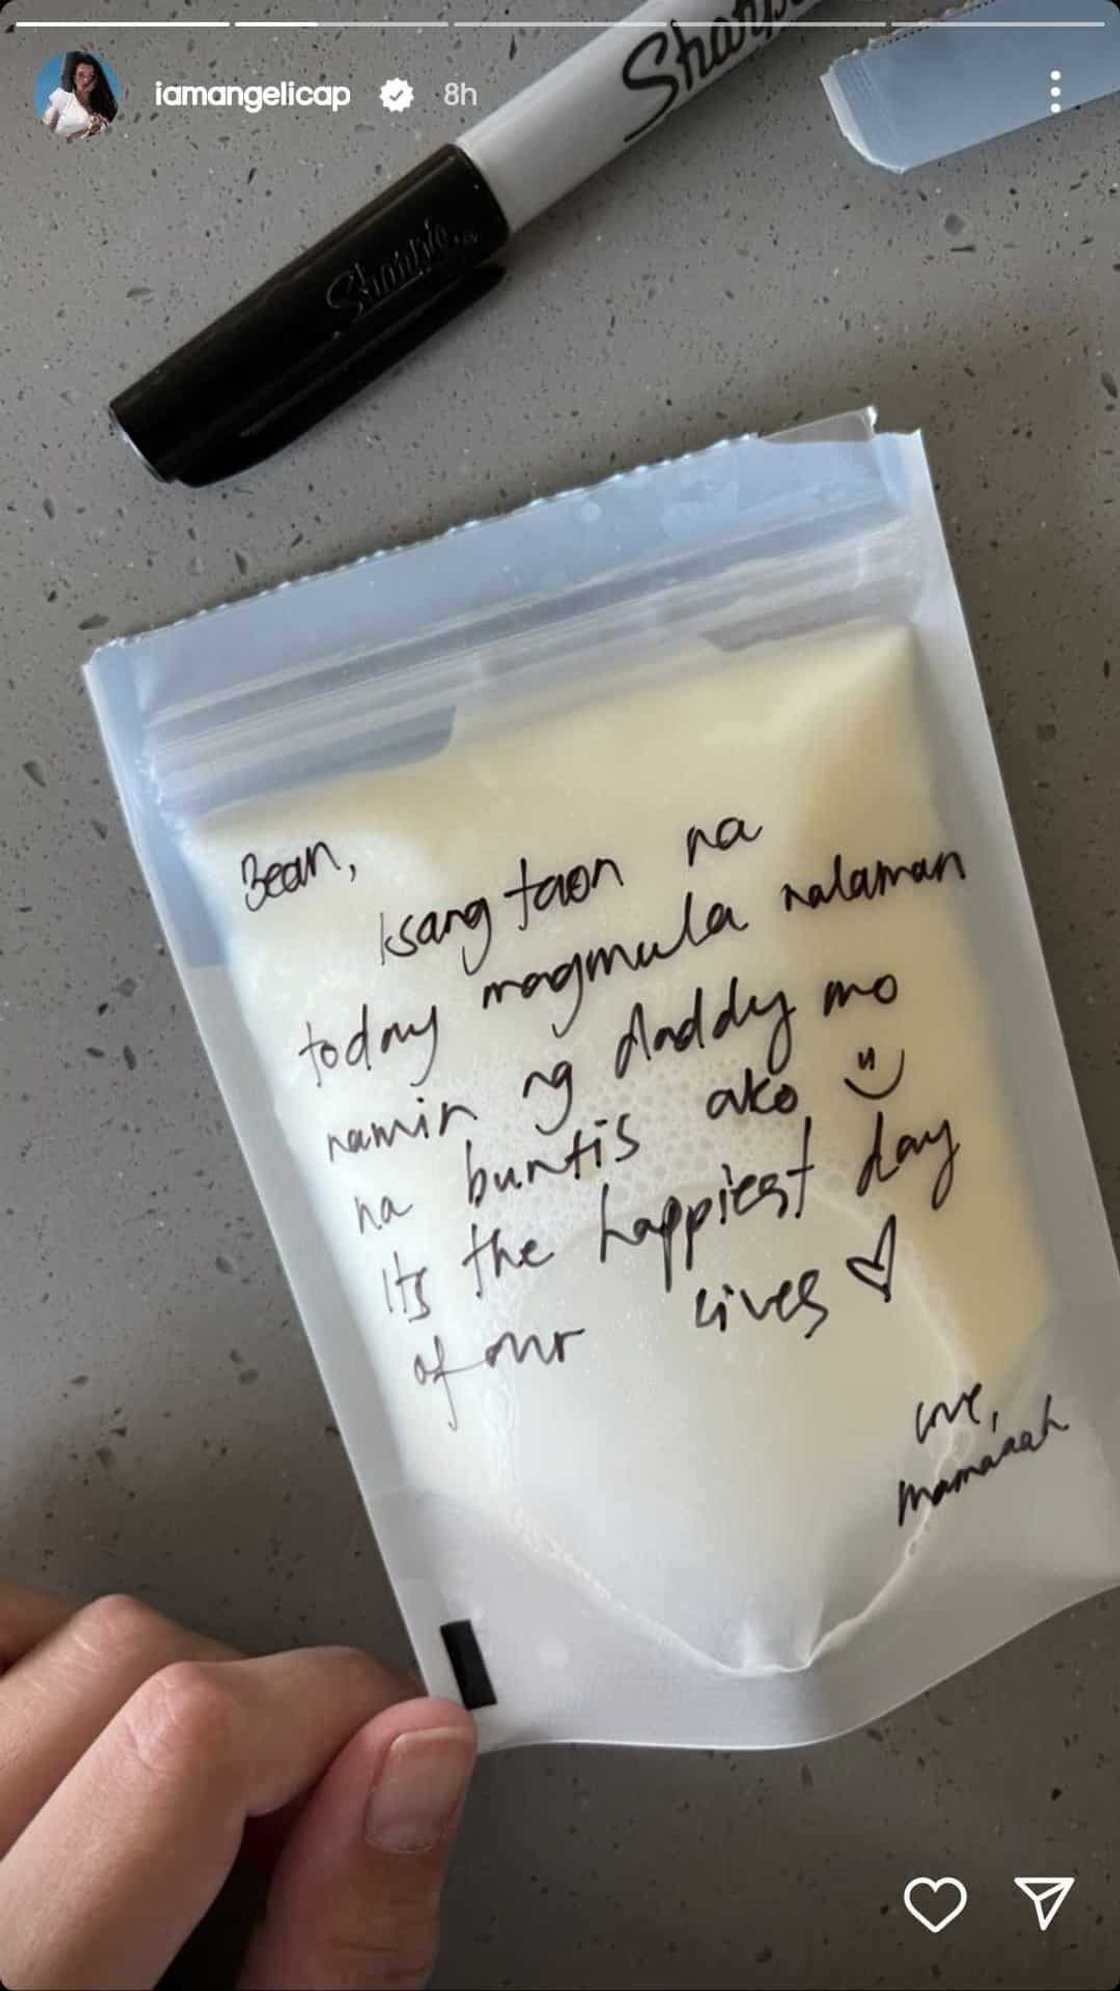 iamangelicap 8h
Sharpie
Sharpie
Bean,
isang taon na
today magmula nalaman
namin ng daddy mo
na buntis ako
Its the happiest day
of our lives
love,
mamaaah